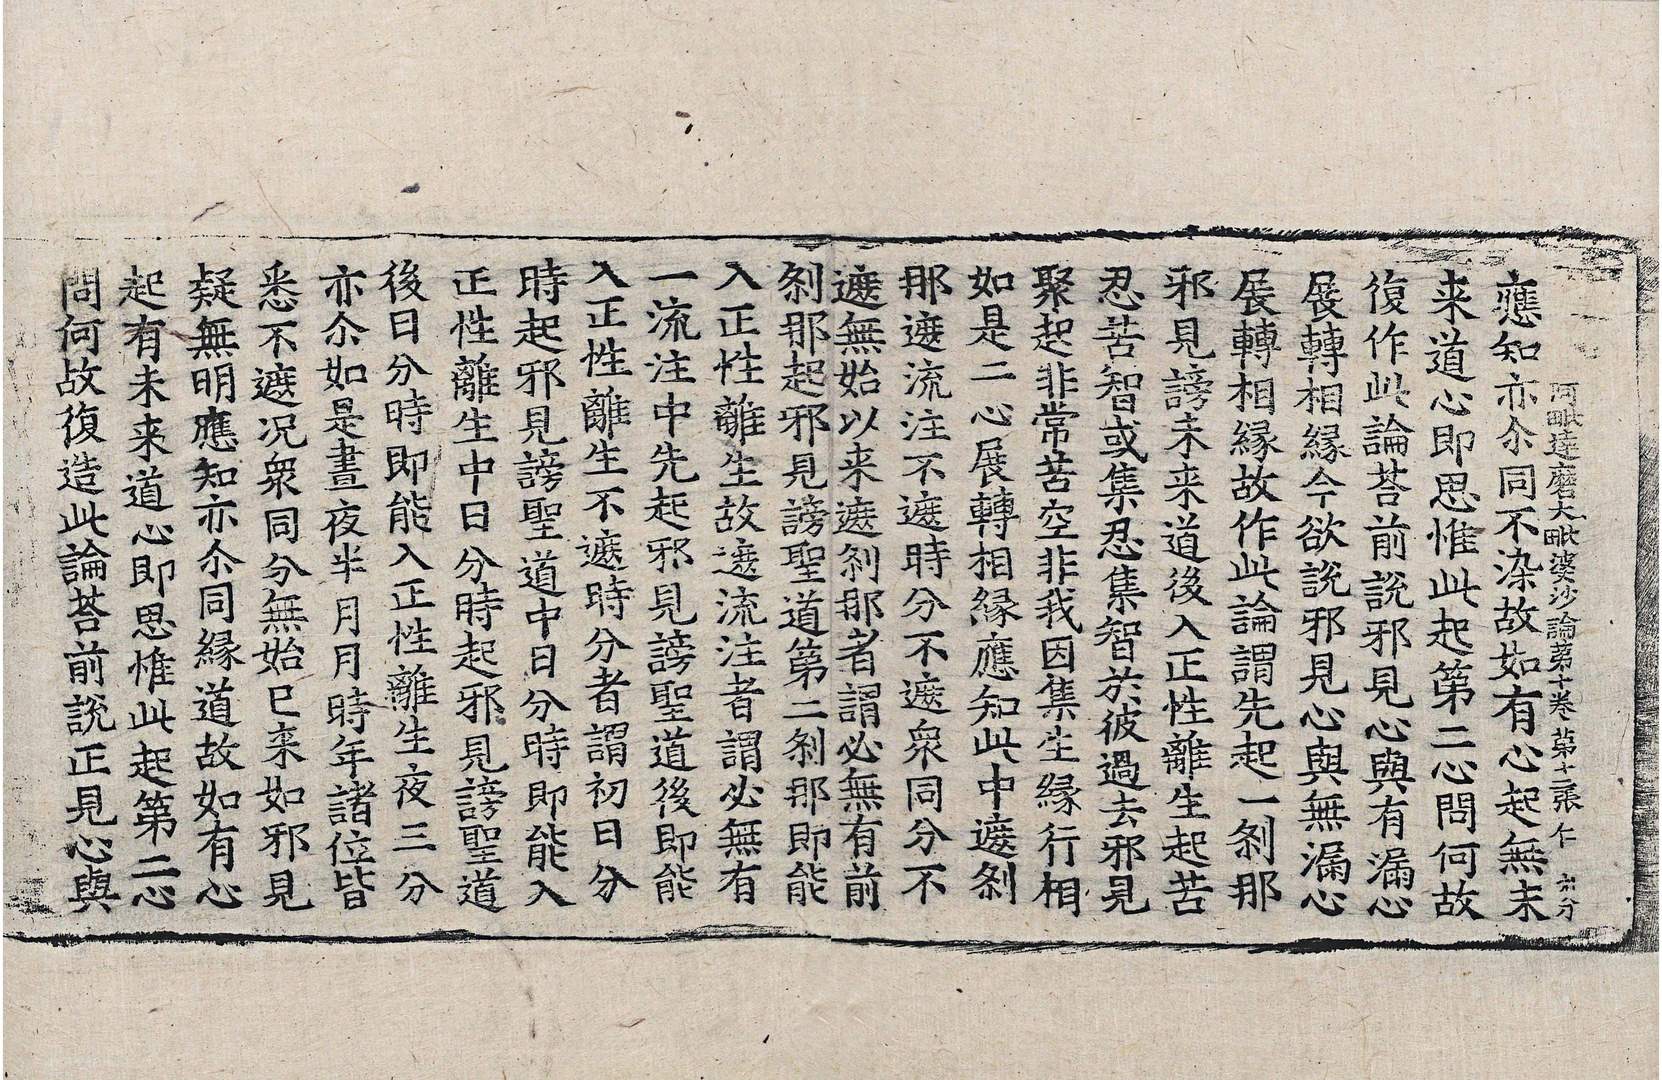 阿毗達磨大毗婆沙論第十卷 第十二張 仁
應知亦尒同不染故如有心起無未
来道心即思惟此起第二心問何故
復作此論荅前說邪見心與有漏心
展轉相緣今欲說邪見心與無漏心
展轉相緣故作此論謂先起一刹那
邪見謗未来道後入正性離生起苦
忍苦智或集忍集智於彼過去邪見
聚起非常苦空非我因集生緣行相
如是二心展轉相緣應知此中遮刹
那遮流注不遮時分不遮衆同分不
遮無始以来遮刹那者謂必無有前
刹那起邪見謗聖道第二刹那即能
入正性離生故遮流注者謂必無有
一流注中先起邪見謗聖道後即能
入正性離生不遮時分者謂初日分
時起邪見謗聖道中日分時即能入
正性離生中日分時起邪見謗聖道
後日分時即能入正性離生夜三分
亦尒如是晝夜半月月時年諸位皆
悉不遮况衆同分無始已来如邪見
疑無明應知亦尒同緣道故如有心
起有未来道心即思惟此起第二心
問何故復造此論荅前說正見心與